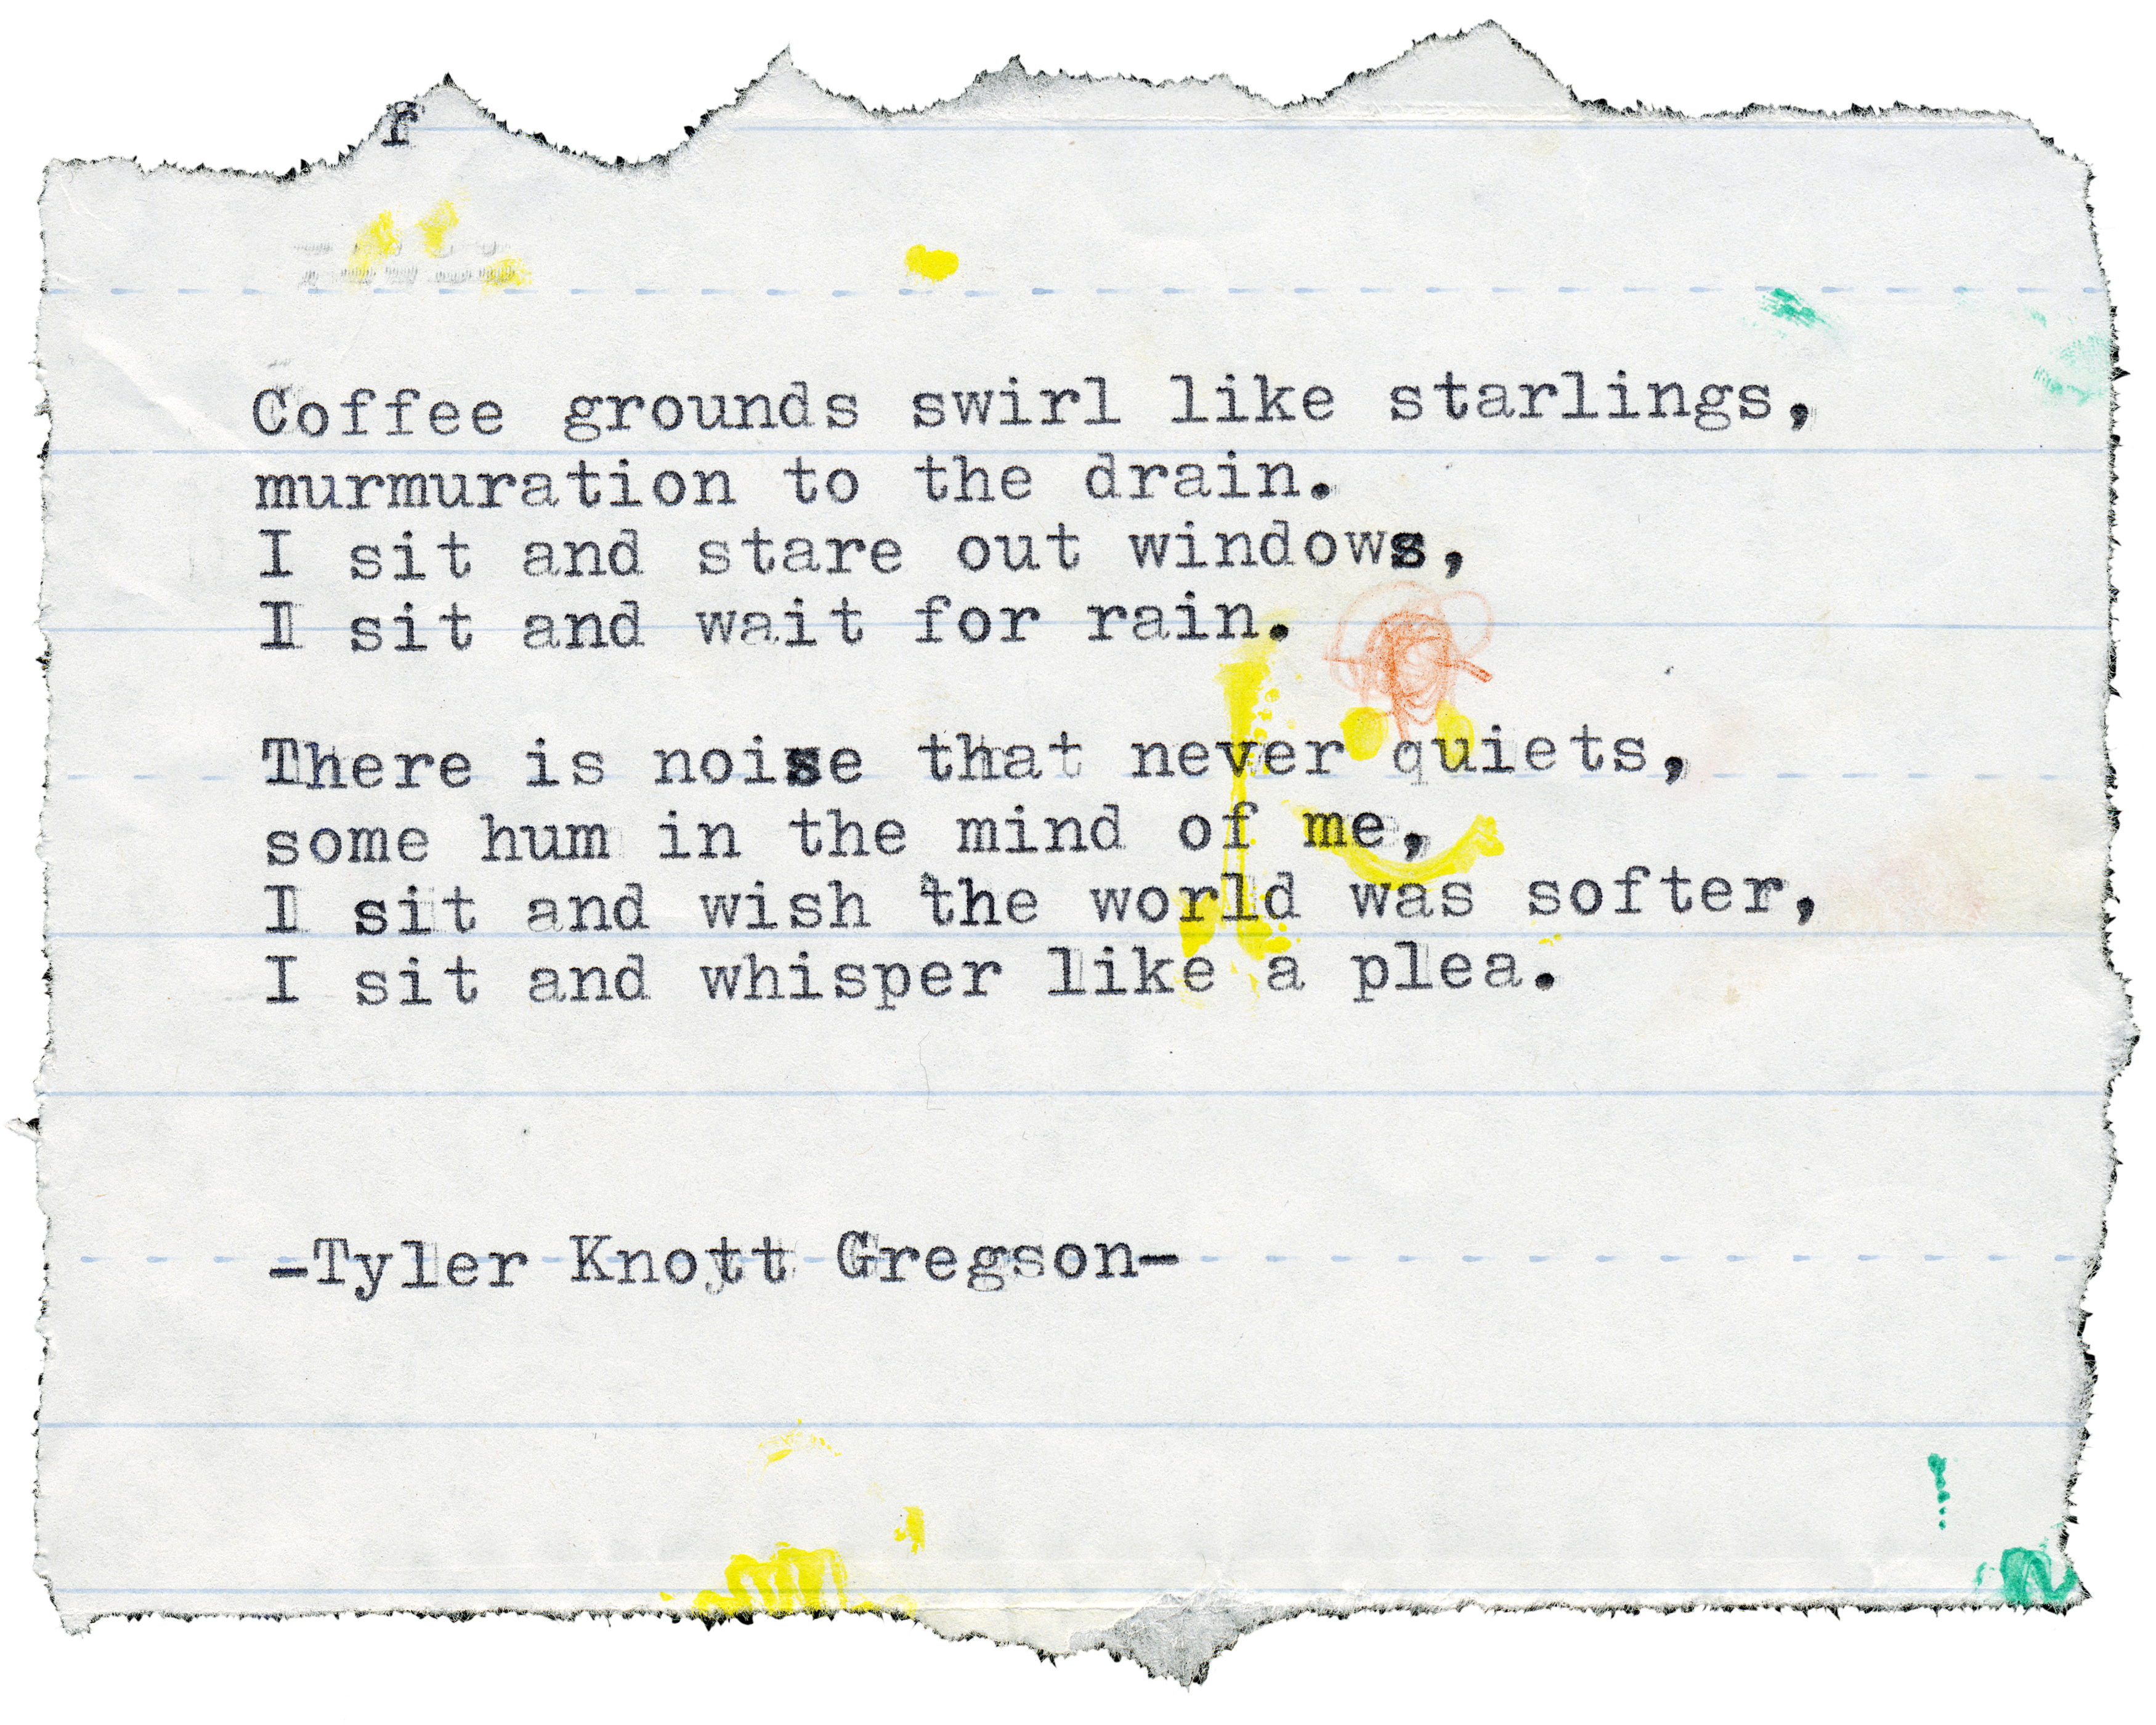 r
Coffee grounds swirl like starlings,
murmuration to the drain.
I sit and stare out windows,
I sit and wait for rain.
There is noise that never quiets,
some hum in the mind of me,
I sit and wish the world was softer,
I sit and whisper like a plea.
-Tyler Knott Gregson-